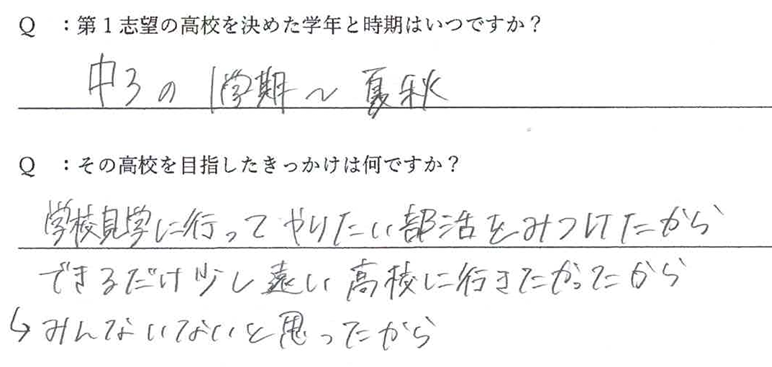 Q ：第１志望の高校を決めた学年と時期はいつですか？
中3の 1学期～夏秋
Q ：その高校を目指したきっかけは何ですか？
学校見学に行ってやりたい部活をみつけたから
できるだけ少し遠い高校に行きたかったから
↳みんないないと思ったから